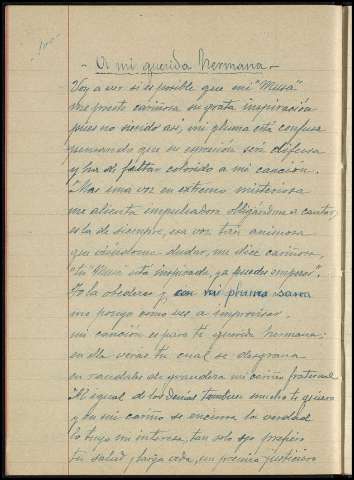 - A mi querida hermana -
Voy a ver si es posible que mi "Musa"
me preste cariñosa su grata inspiración
pues no siendo así, mi pluma está confusa
pensando que su emoción será difusa
y ha de faltar colorido a mi canción.
Mas una voz en extremo misteriosa
me alienta impulsadora obligándome a cantar,
es la de siempre, esa voz tan animosa
que viéndome dudar, me dice cariñosa,
"tu Musa está inspirada, ya puedes empezar".
Yo la obedezco y, con mi pluma
me pongo como ves a improvisar,
mi canción es para ti querida hermana;
en ella verás tu cual se desgrana
en raudales de grandeza mi cariño fraternal
Al igual de los demás tambien mucho te quiero
y en mi cariño se encierra la verdad
lo tuyo me interesa, tan solo yo prefiero
tu salud, larga vida, un premio justiciero